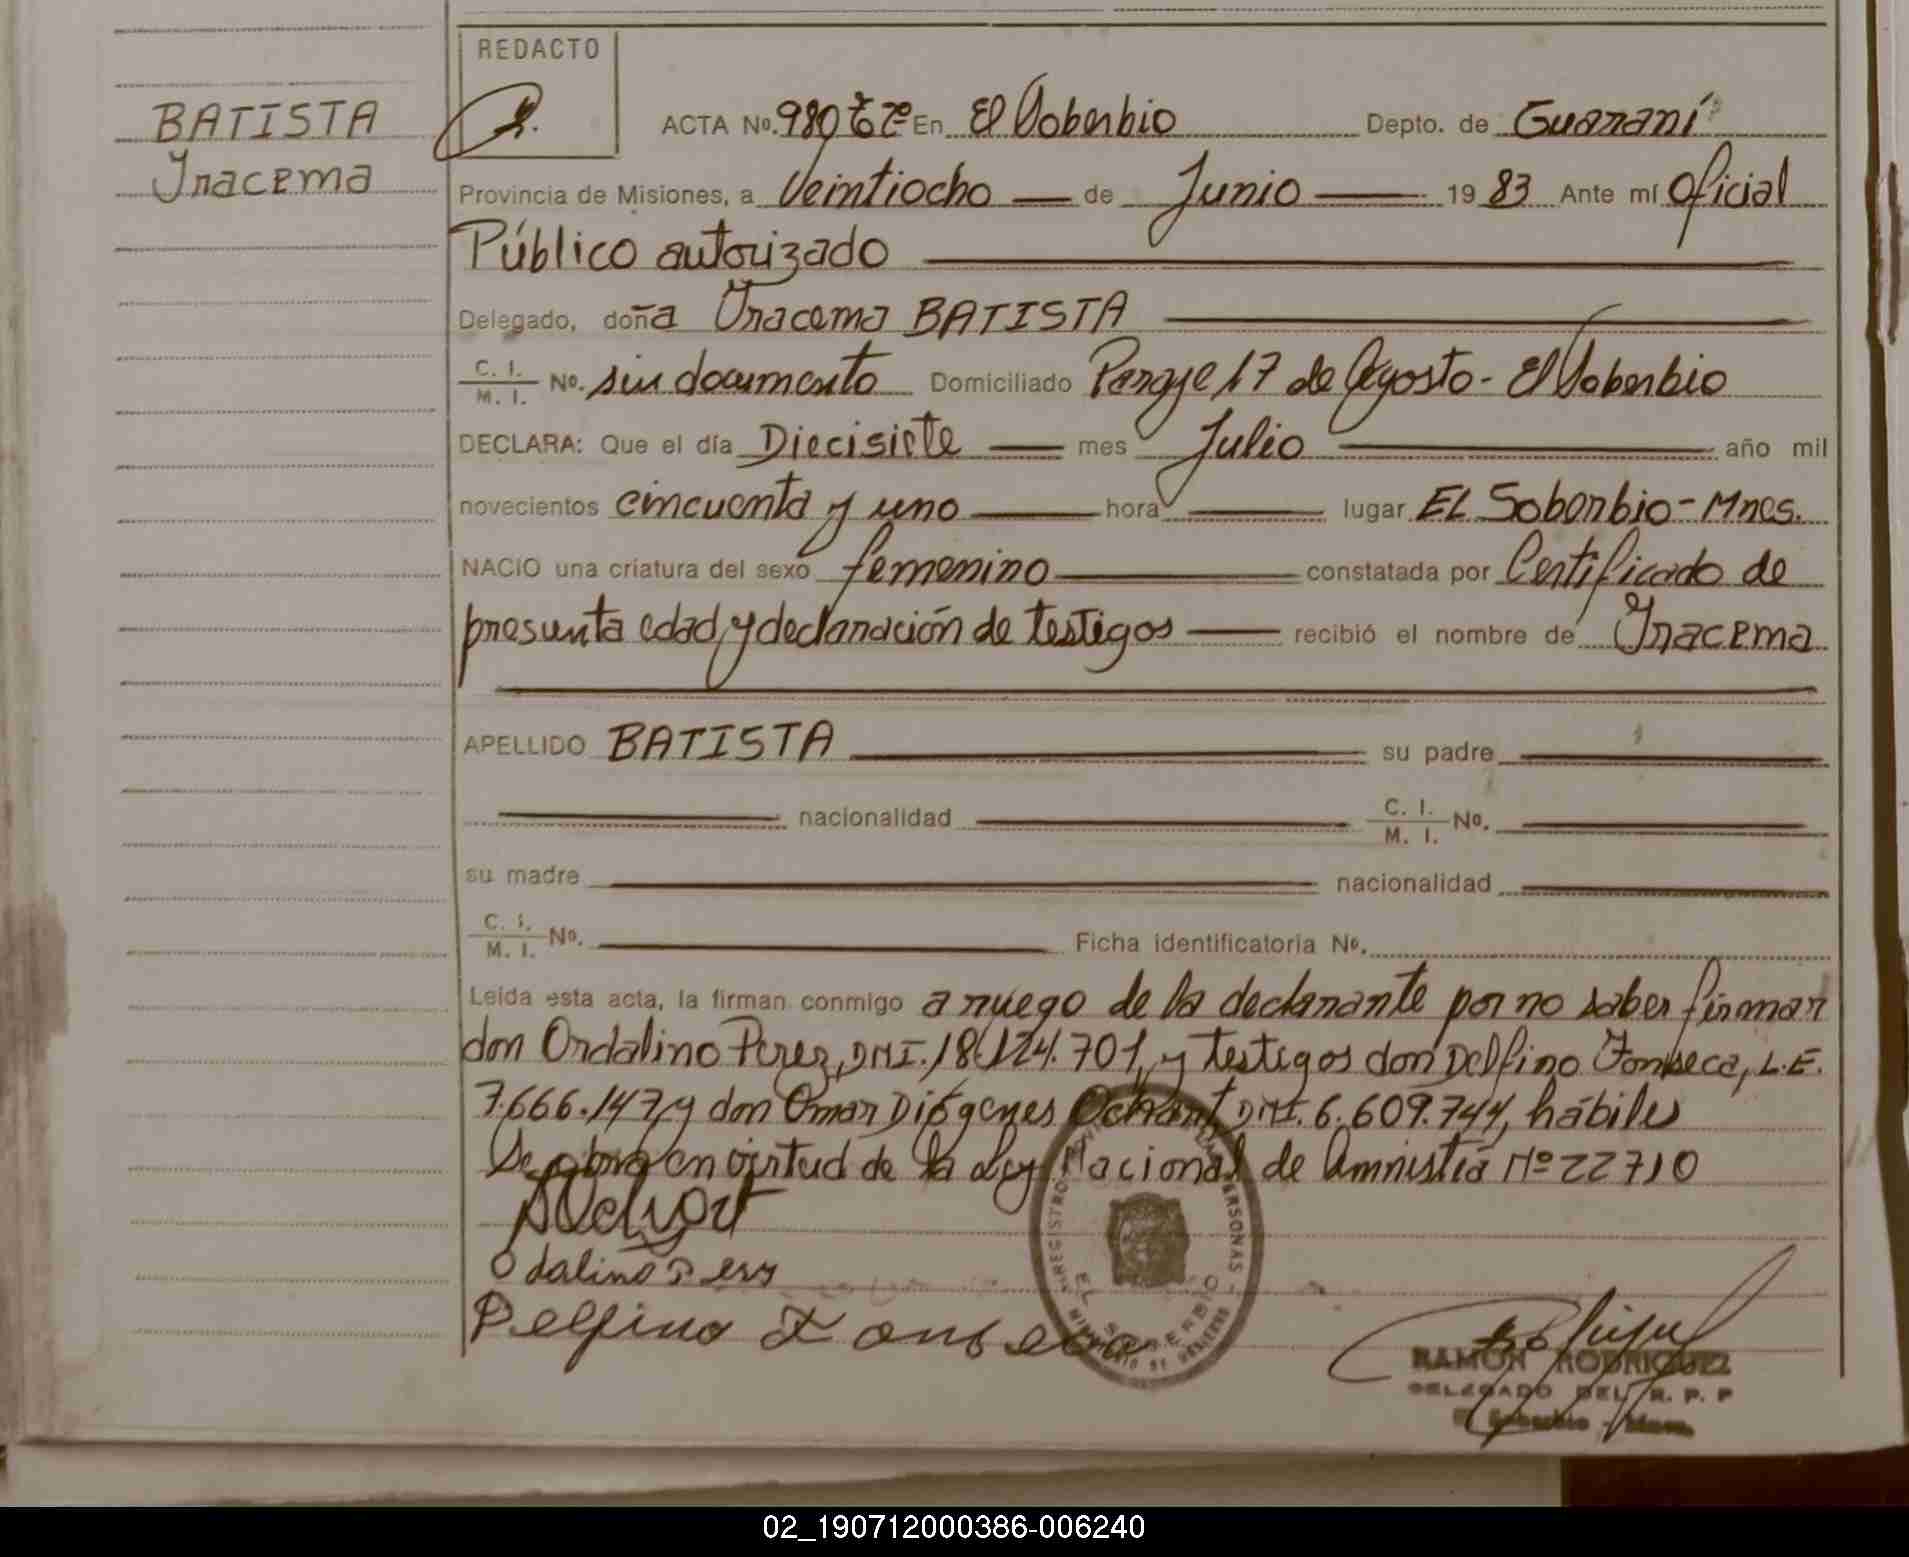 REDACTO
BATISTA
Iracema
ACTA Nº. 980 Tº 7º En El Soberbio Depto. de Guaraní
Provincia de Misiones, a Veintiocho de Junio 1983 Ante mí Oficial
Público autorizado
Delegado, doña Iracema BATISTA
C. I. / M. I. Nº. sin documento Domiciliado Paraje 17 de Agosto - El Soberbio
DECLARA: Que el día Diecisiete mes Julio año mil
novecientos cincuenta y uno hora lugar EL Soberbio - Mnes.
NACIO una criatura del sexo femenino constatada por Certificado de
presunta edad y declaración de testigos recibió el nombre de Iracema
APELLIDO BATISTA su padre
nacionalidad C. I. / M. I. Nº.
su madre nacionalidad
C. I. / M. I. Nº. Ficha identificatoria Nº.
Leída esta acta, la firman conmigo a ruego de la declarante por no saber firmar
don Ordalino Perez, DNI. 18.124.701, y testigos don Delfino Fonseca, L.E.
7.666.147, y don Omar Diógenes Ochart, DNI. 6.609.744, hábiles
Se labra en virtud de la Ley Nacional de Amnistía Nº 22710
Odalino Perz
Delfino Fonseca
REGISTRO PERSONAS
EL SOBERBIO
MINISTERIO DE GOBIERNO
RAMON RODRIGUEZ
DELEGADO DEL R. P. P
El Soberbio - Mnes.
02_190712000386-006240